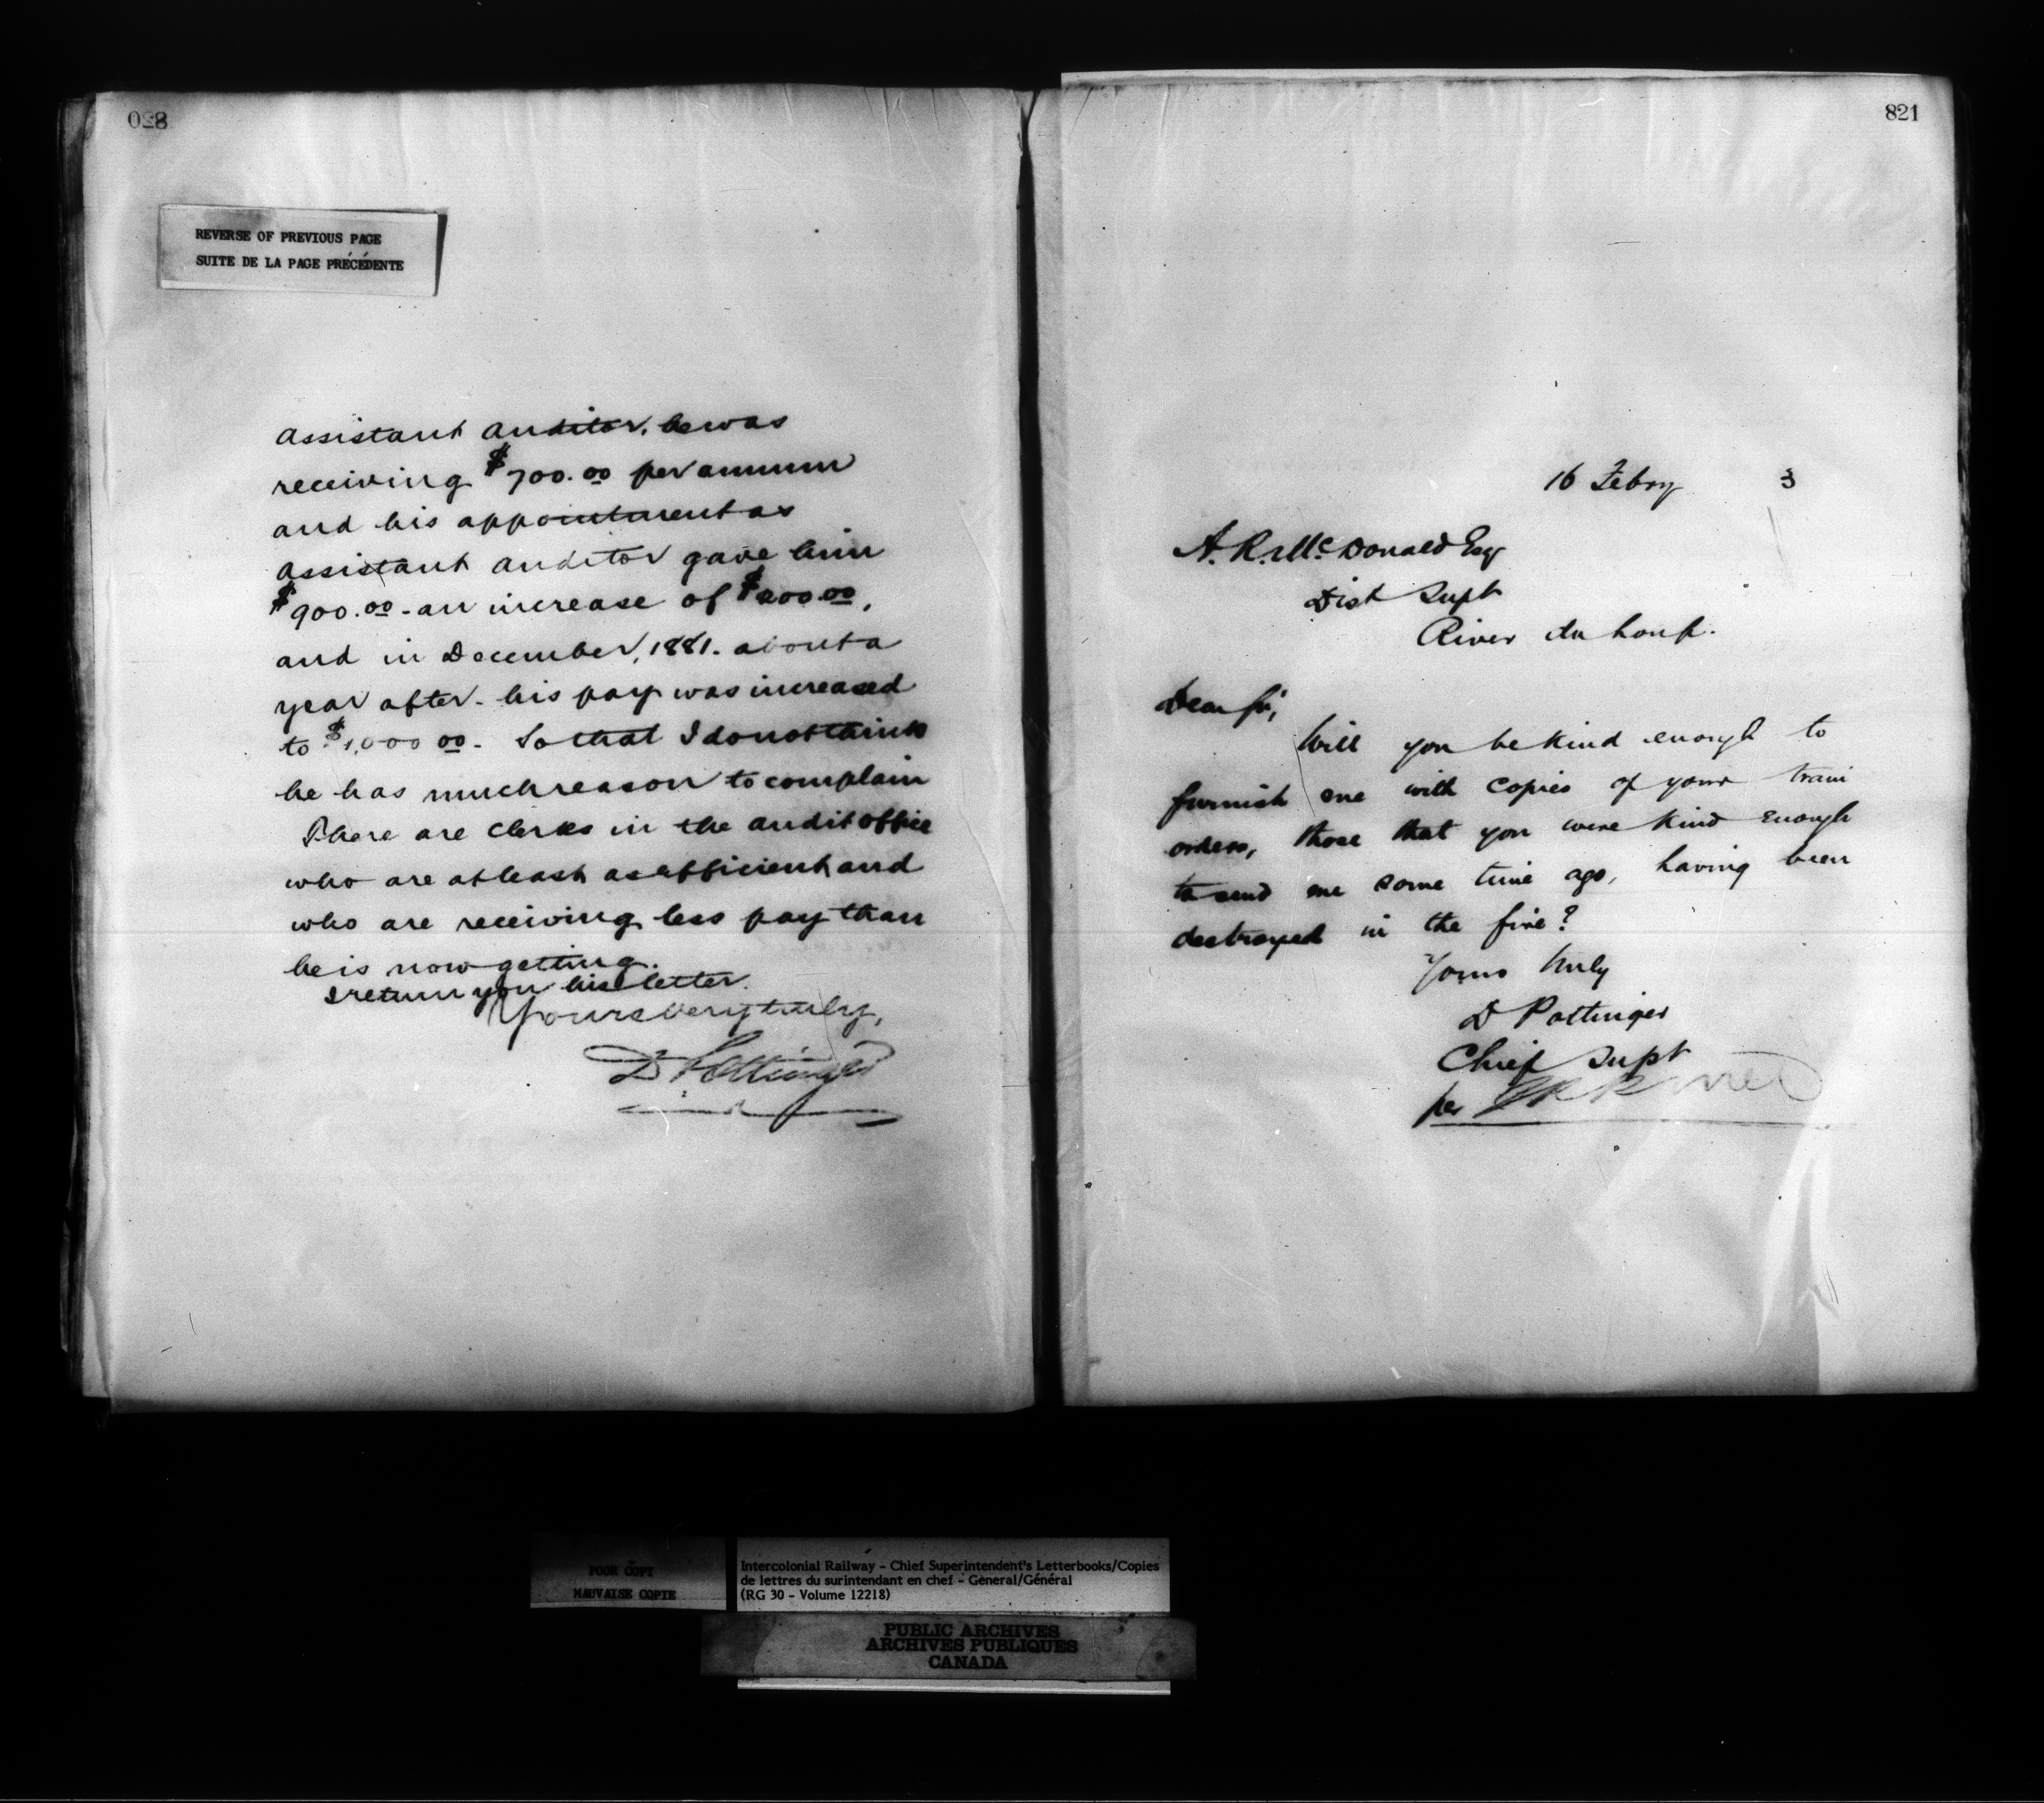 028
REVERSE OF PREVIOUS PAGE
SUITE DE LA PAGE PRÉCÉDENTE
assistant auditor, he was
receiving $700.00 per annum
and his appointment as
assistant auditor gave him
$900.00 - an increase of $200.00,
and in December, 1881. about a
year after - his pay was increased
to $1,000 00 - So that I do not think
he has much reason to complain
There are clerks in the audit office
who are at least as efficient and
who are receiving less pay than
he is now getting.
I return you his letter.
Yours very truly,
D Pottinger
821
16 Febry 3
A. R. McDonald Esq
Dist Supt
River du Loup.
Dear Sir,
Will you be kind enough to
furnish me with copies of your train
orders, those that you were kind enough
to send me some time ago, having been
destroyed in the fire?
Yours truly
D Pottinger
Chief Supt
per
POOR COPY
MAUVAISE COPIE
Intercolonial Railway - Chief Superintendent's Letterbooks/Copies
de lettres du surintendant en chef - General/Général
(RG 30 - Volume 12218)
PUBLIC ARCHIVES
ARCHIVES PUBLIQUES
CANADA